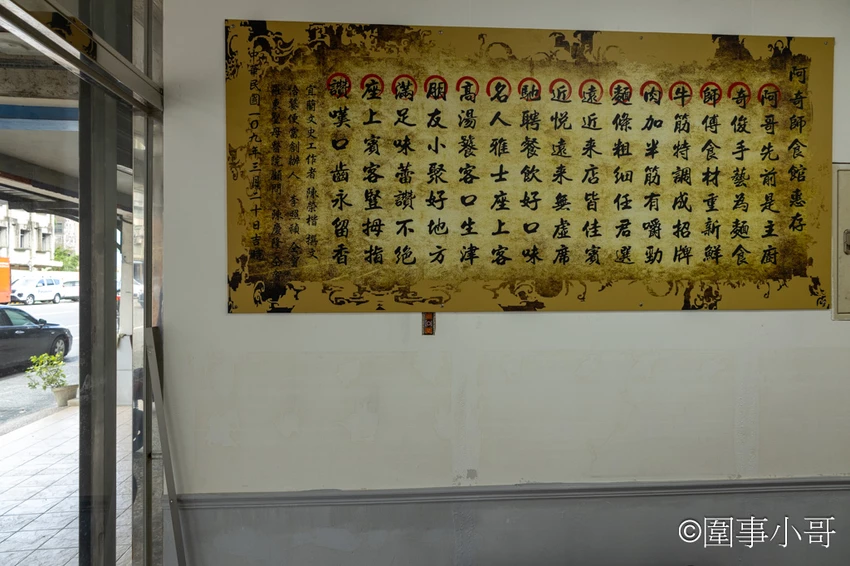 阿奇師食館惠存
阿哥先前是主廚
奇俊手藝為麵食
師傅食材重新鮮
牛筋特調成招牌
肉加半筋有嚼勁
麵條粗細任君選
遠近來店皆佳賓
近悅遠來無虛席
馳聘餐飲好口味
名人雅士座上客
高湯饕客口生津
朋友小聚好地方
滿足味蕾讚不絕
座上賓客豎拇指
讚嘆口齒永留香
宜蘭文史工作者 陳營楷 撰文
中華民國一0九年三月二十日吉
©圍事小哥